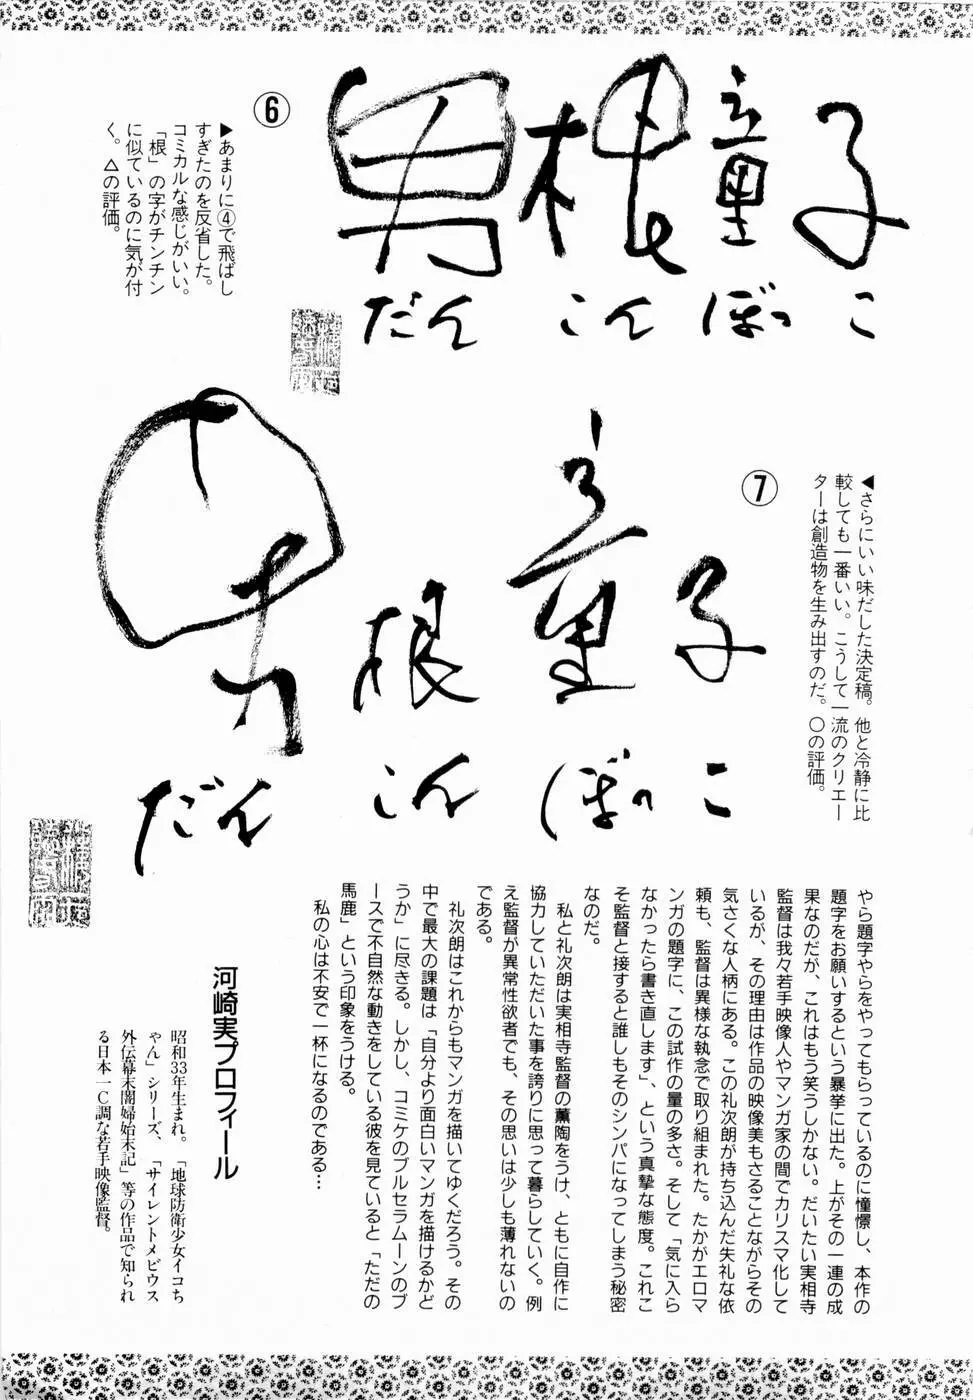 ⑥
男根童子
だんこんぼっこ
▶あまりに④で飛ばし
すぎたのを反省した。
コミカルな感じがいい。
「根」の字がチンチン
に似ているのに気が付
く。△の評価。
◀さらにいい味だした決定稿。他と冷静に比
較しても一番いい。こうして一流のクリエー
ターは創造物を生み出すのだ。○の評価。
⑦
男根童子
だんこんぼっこ
やら題字やらをやってもらっているのに憧憬し、本作の
題字をお願いするという暴挙に出た。上がその一連の成
果なのだが、これはもう笑うしかない。だいたい実相寺
監督は我々若手映像人やマンガ家の間でカリスマ化して
いるが、その理由は作品の映像美もさることながらその
気さくな人柄にある。この礼次朗が持ち込んだ失礼な依
頼も、監督は異様な執念で取り組まれた。たかがエロマ
ンガの題字に、この試作の量の多さ。そして「気に入ら
なかったら書き直します」、という真摯な態度。これこ
そ監督と接すると誰しもそのシンパになってしまう秘密
なのだ。
私と礼次朗は実相寺監督の薫陶をうけ、ともに自作に
協力していただいた事を誇りに思って暮らしていく。例
え監督が異常性欲者でも、その思いは少しも薄れないの
である。
礼次朗はこれからもマンガを描いてゆくだろう。その
中で最大の課題は「自分より面白いマンガを描けるかど
うか」に尽きる。しかし、コミケのブルセラムーンのブ
ースで不自然な動きをしている彼を見ていると「ただの
馬鹿」という印象をうける。
私の心は不安で一杯になるのである…
河崎実プロフィール
昭和33年生まれ。「地球防衛少女イコち
ゃん」シリーズ、「サイレントメビウス
外伝幕末闇婦始末記」等の作品で知られ
る日本一C調な若手映像監督。